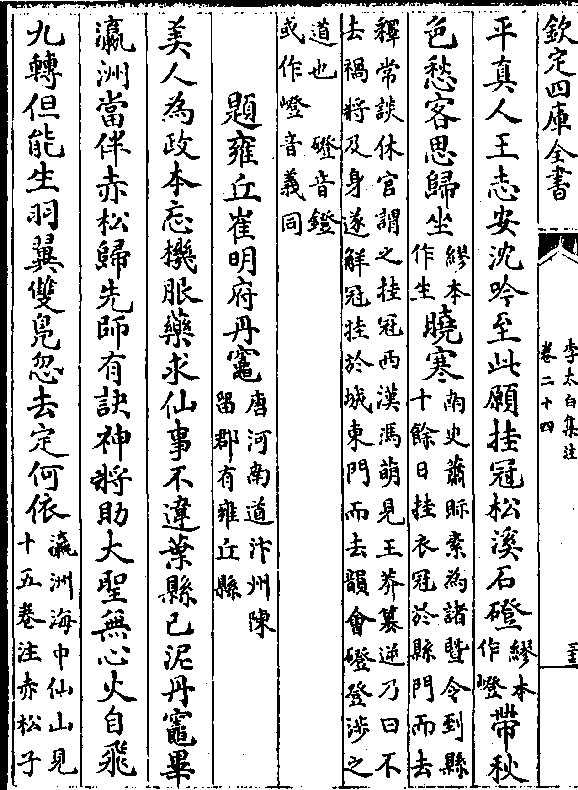 欽定四庫全書
李太白集注
卷二十四
平真人王志安沈吟至此願挂冠松溪石磴繆本作嶝帶秋
色愁客思歸坐繆本作生曉寒南史蕭眎素為諸暨令到縣十餘日挂衣冠於縣門而去
釋常談休官謂之挂冠西漢馮萌見王莽簒逆乃曰不
去禍將及身遂解冠挂於城東門而去韻會磴登渉之
道也 磴音鐙
或作嶝音義同
題雍丘崔明府丹竈唐河南道汴州陳留郡有雍丘縣
美人為政本忘機服藥求仙事不違葉縣已泥丹竈畢
瀛洲當伴赤松歸先師有訣神將助大聖無心火自飛
九轉但能生羽翼雙鳧忽去定何依瀛洲海中仙山見十五卷注赤松子